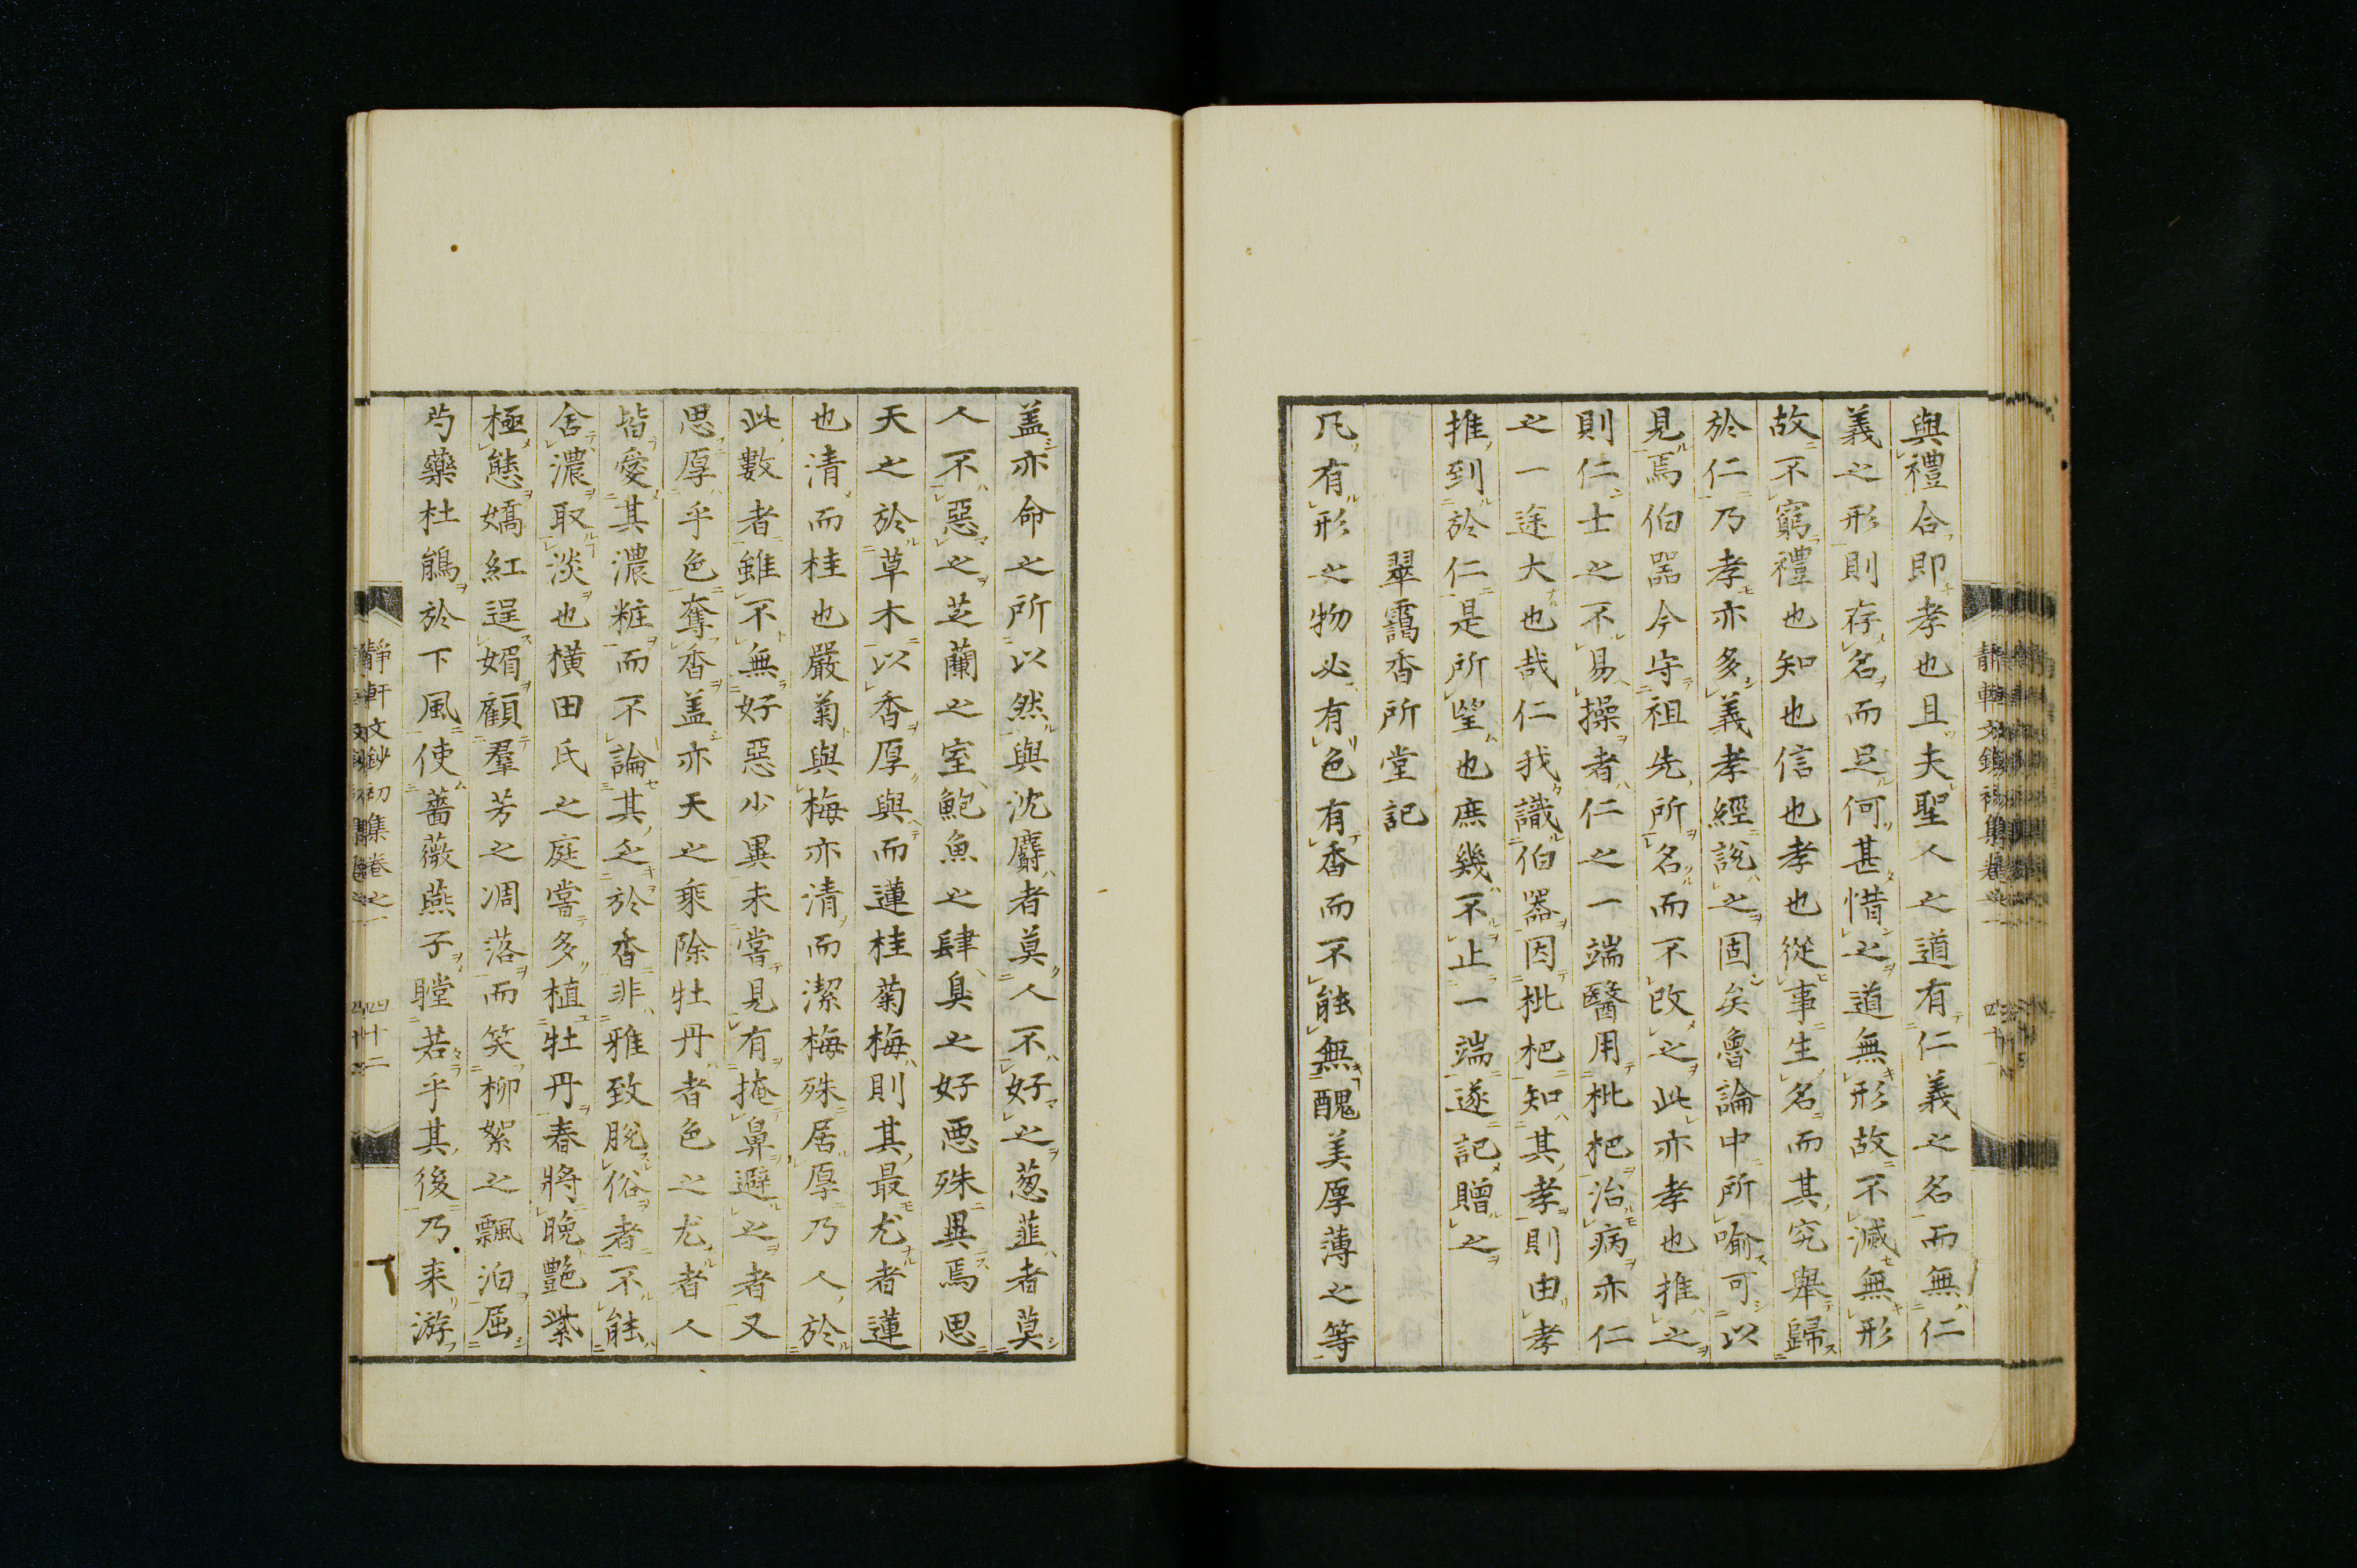 與禮合即孝也且夫聖人之道有仁義之名而無仁
義之形則存名而足何甚惜之道無形故不滅無形
故不窮禮也知也信也孝也從事生名而其究舉歸
於仁乃孝亦多義孝經說之固矣魯論中所喻可以
見焉伯器今守祖先所名而不改之此亦孝也推之
則仁士之不易操者仁之一端醫用枇杷治病亦仁
之一途大也哉仁我識伯器因枇杷知其孝則由孝
推到於仁是所望也庶幾不止一端遂記贈之
翠靄香所堂記
凡有形之物必有色有香而不能無醜美厚薄之等
盖亦命之所以然與沈麝者莫人不好之葱韮者莫
人不惡之芝蘭之室鮑魚之肆臭之好悪殊異焉思
天之於草木以香厚與而蓮桂菊梅則其最尤者蓮
也清而桂也嚴菊與梅亦清而潔梅殊居厚乃人於
此數者雖不無好惡少異未嘗見有掩鼻避之者又
思厚乎色奪香盖亦天之乘除牡丹者色之尤者人
皆愛其濃粧而不論其乏於香非雅致脫俗者不能
舍濃取淡也横田氏之庭嘗多植牡丹春將晚艷紫
極態嬌紅逞媚顧羣芳之凋落而笑柳絮之飄泊屈
芍藥杜鵑於下風使薔薇燕子瞠若乎其後乃来游
靜軒文鈔初集卷之一
四十二